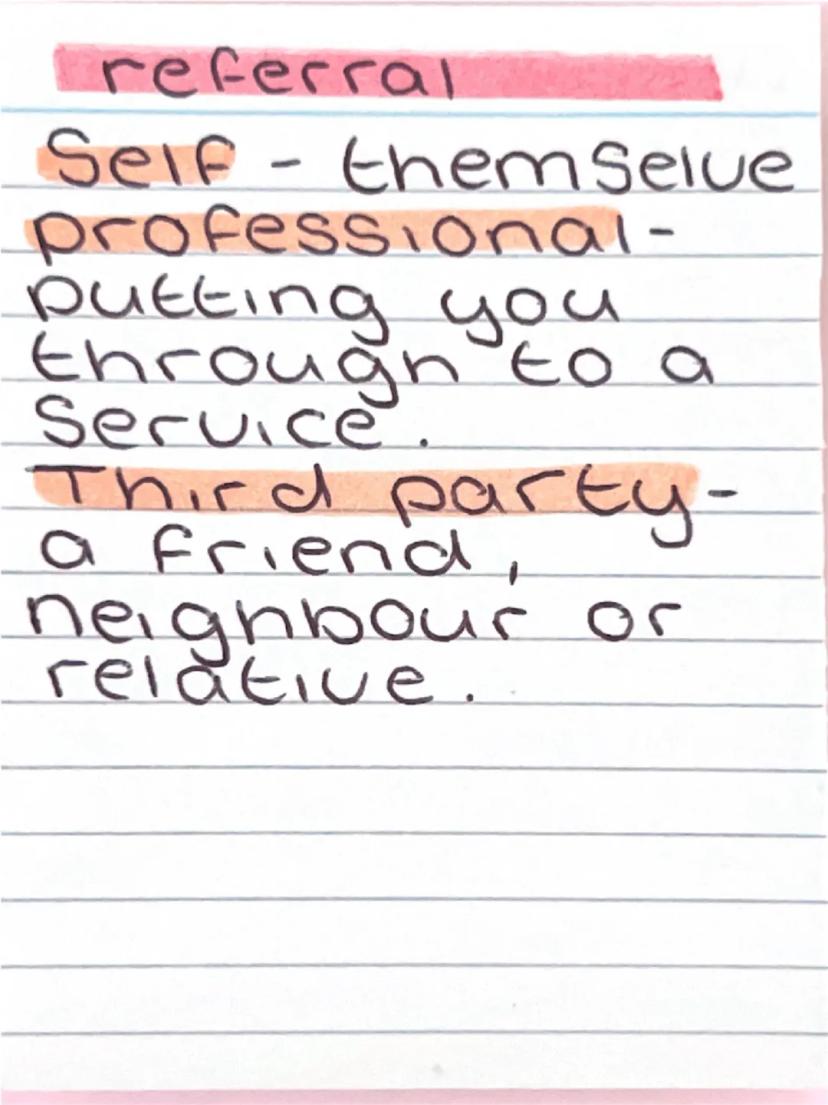 referral
Self - themselve
professional-
putting you
through to a
Service.
Third party-
a friend,
neighbour or
relative.